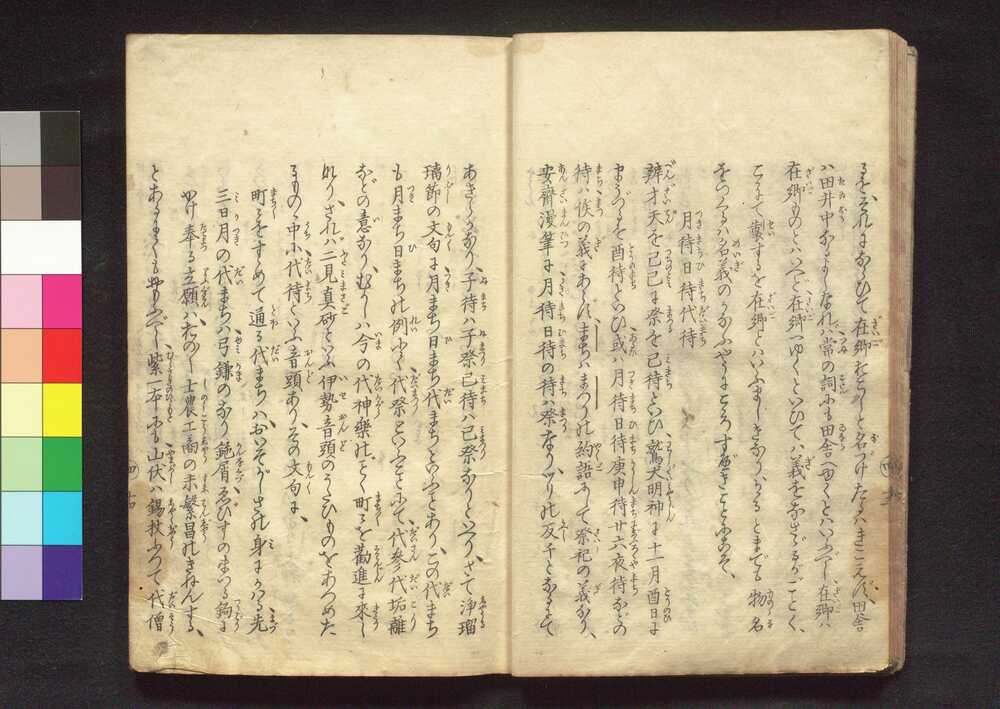 るをそれにならひて在郷だこりと名つけたるハきこえず田舎
ハ田井中なるよしなれバ常の詞にも田舎へゆくとハいふべし在郷ハ
在郷ものとハいへど在郷へゆくといひてハ義をなさゞるがごとく
こゝにて製するを在郷とハいふまじきなりかゝることまでも物名
をつくるハ名義のかなふやうにこそすべきことになむ
月待日待代待
辨才天を己巳に祭を巳待といひ鷲大明神に十一月酉日に
まうづるを酉待といひ或ハ月待日待庚申待廿六夜待などの
待ハ俟の義にあらずまちハまつりの約語にして祭祀の義なり
安齋漫筆に月待日待の待ハ祭なりツリの反チとなるにて
あきらかなり子待ハ子祭巳待ハ巳祭なりといへりさて浄瑠
璃節の文句に月まち日まち代まちといふことありこの代まち
も月まち日まちの例にて代祭といふことにて代参代垢離
などの意なりむかしハ今の代神樂のごとく町々を勸進に來し
なりされバ二見真砂といふ伊勢音頭のうたひものをあつめた
るものゝ中に代待といふ音頭ありその文句に
町々をすゝめて通る代まちハおいそがしさの身にかハる先
三日月の代まちハ弓鎌のなり鉋屑ゑびすのまつる鈎に
かけ奉る立願ハ士農工商の末繁昌のきねんする
とあるにてもしるべし紫一本にも山伏ハ錫杖ふつて代僧